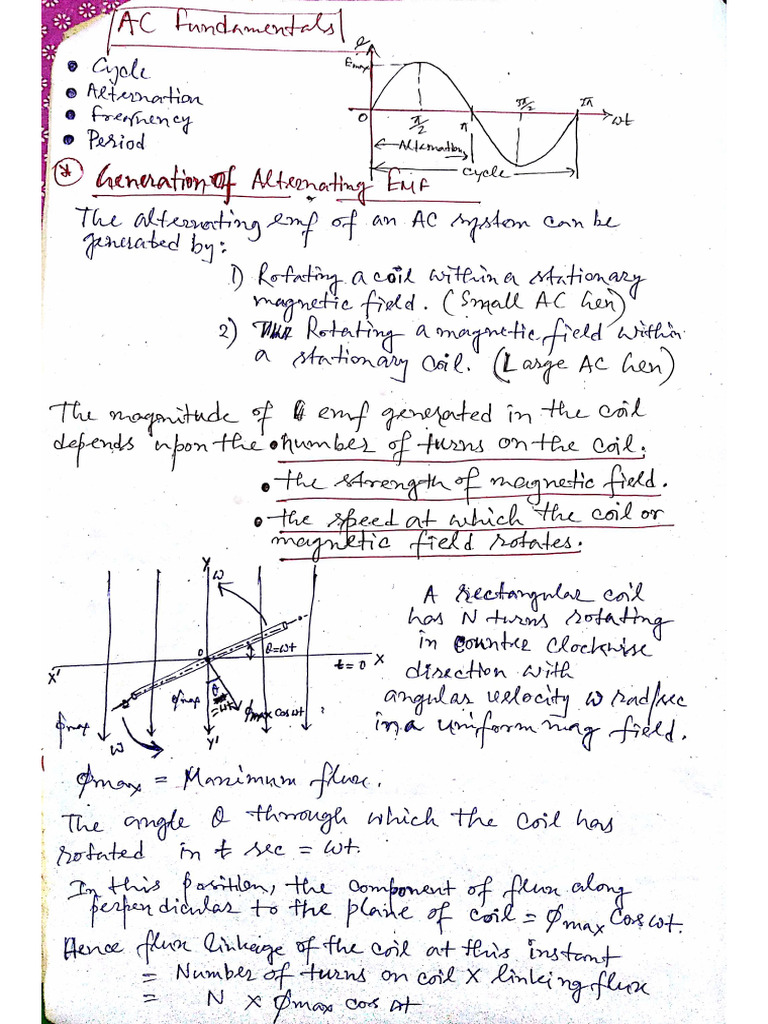 AC Fundamentals
• Cycle
• Alternation
• Frequency
• Period
e
Emax
0
π/2
π
π/2
2π
ωt
Alternation
cycle
* Generation of Alternating EMF
The alternating emf of an AC system can be
generated by:
1) Rotating a coil within a stationary
magnetic field. (Small AC Gen)
2) Rotating a magnetic field within
a stationary coil. (Large AC Gen)
The magnitude of emf generated in the coil
depends upon the • number of turns on the coil.
• the strength of magnetic field.
• the speed at which the coil or
magnetic field rotates.
Y
ω
0
θ=ωt
X'
t=0
X
ϕmax
θ
=ωt
ϕmax cos ωt
ϕmax
ω
Y'
A rectangular coil
has N turns rotating
in counter clockwise
direction with
angular velocity ω rad/sec
in a uniform mag field.
ϕmax = Maximum flux.
The angle θ through which the coil has
rotated in t sec = ωt.
In this position, the component of flux along
perpendicular to the plane of coil = ϕmax cos ωt.
Hence flux linkage of the coil at this instant
= Number of turns on coil × linking flux
= N × ϕmax cos ωt